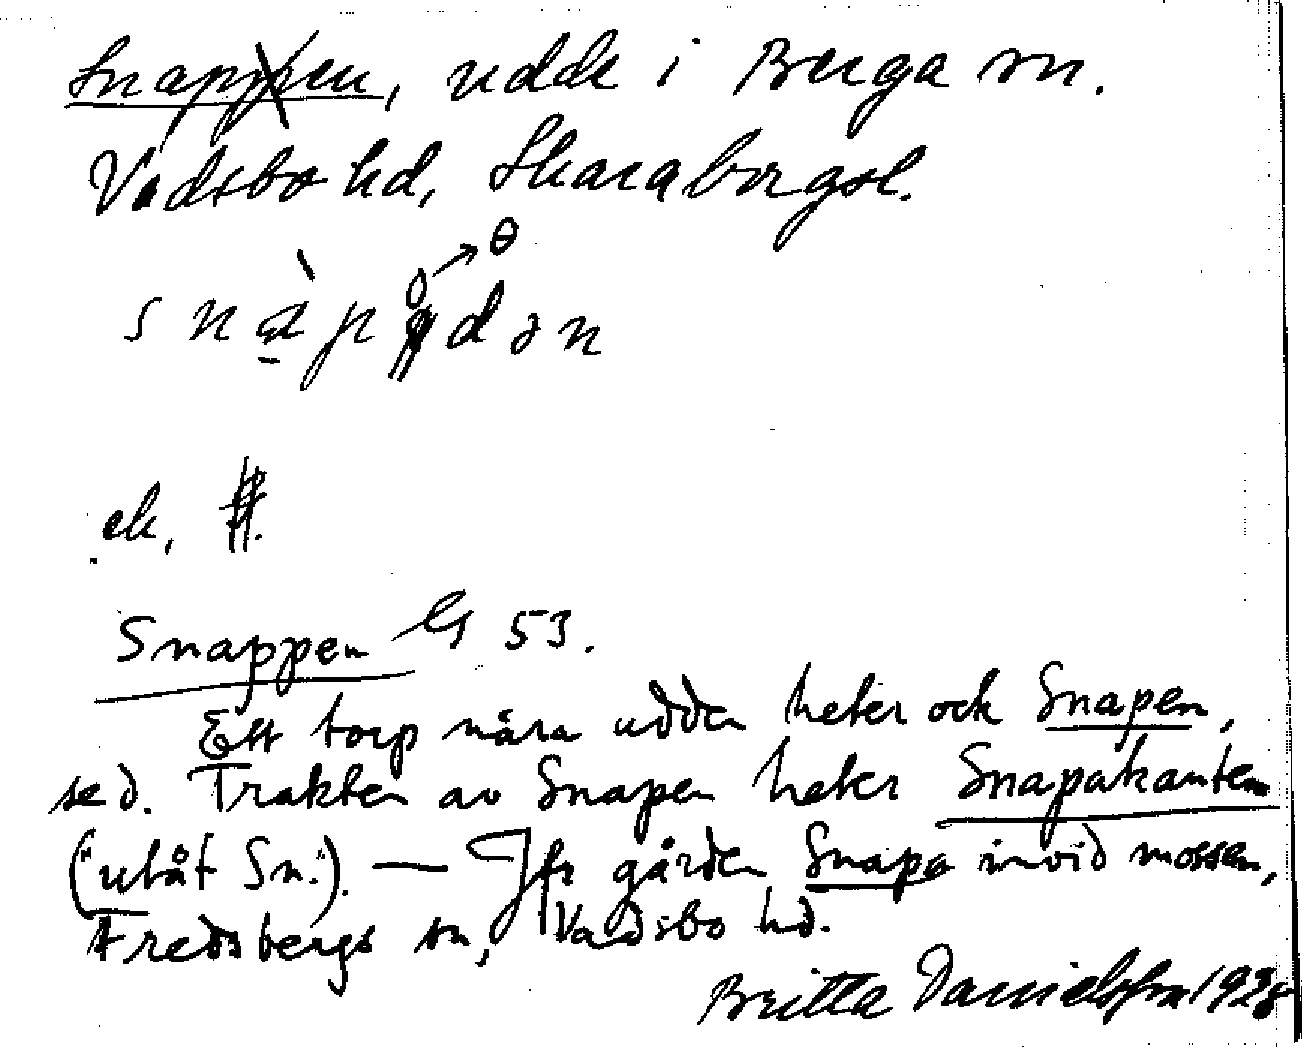 Snappen, udde i Berga sn.
Vadsbo hd, Skaraborgsl.
θ
snàpdən
ek,
Snappen G 53.
Ett torp nära udden heter ock Snapen,
se d. Trakten av Snapen heter Snapakanten
("utåt Sn."). — Jfr gården Snapa invid mossen,
Fredsbergs sn, Vadsbo hd.
Britta Danielsson 1928